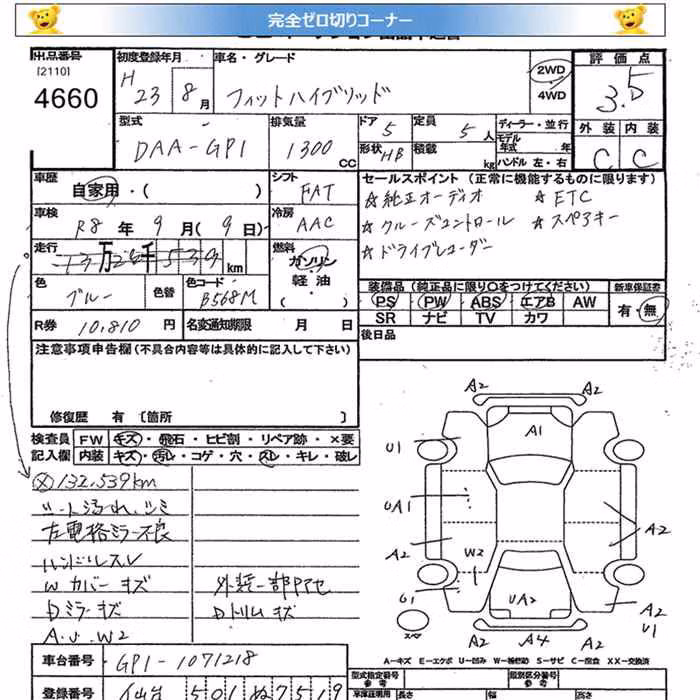 完全ゼロ切りコーナー
出品番号
[2110]
4660
初度登録年月
H 23年 8月
車名・グレード
フィットハイブリッド
2WD
4WD
評価点
3.5
型式
DAA-GP1
排気量
1300 CC
ドア 5
形状 HB
定員 5 人
積載 kg
ディーラー・並行
モデル年式 年
ハンドル 左・右
外装 内装
C C
車歴
自家用・( )
シフト
FAT
セールスポイント (正常に機能するものに限ります)
☆純正オーディオ ☆ETC
☆クルーズコントロール ☆スペアキー
☆ドライブレコーダー
車検
R8 年 9 月(9 日)
冷房
AAC
走行
13万2千539 km
燃料
ガソリン
軽油
( )
色
ブルー
色替
色コード
B568M
装備品 (純正品に限り○をつけてください)
新車保証書
PS PW ABS エアB AW
SR ナビ TV カワ
有・無
R券 10,810 円
名変通知期限 月 日
後日品
注意事項申告欄 (不具合内容等は具体的に記入して下さい)
修復歴 有 〔箇所 〕
検査員記入欄
FW キズ・飛石・ヒビ割・リペア跡・×要
内装 キズ・汚レ・コゲ・穴・スレ・キレ・破レ
132,539km
シート汚れ、シミ
左電格ミラー不良
ハンドルスレ
Wカバーキズ
外装一部PP色
Dミラーキズ
Dトリムキズ
A.U.W2
A2
A2
A1
U1
UA1
A2
A2
W2
U1
UA2
A2
U1
スペア
A2
A4
A2
A-キズ E-エクボ U-凹み W-補修跡 S-サビ C-腐食 XX-交換済
車台番号
GP1-1071218
型式指定番号
参考
類別区分番号
参考
登録番号
仙台 501 ぬ 7519
車庫証明用
参考
長さ
幅
高さ